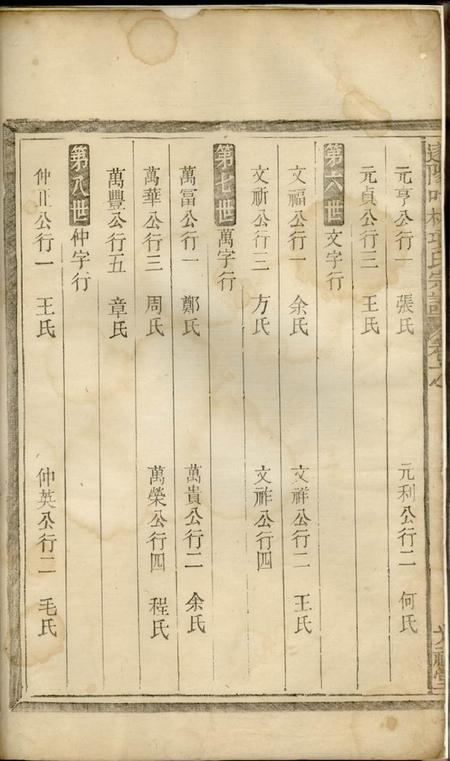 元亨公行一 張氏 元利公行二 何氏
元貞公行三 王氏
第六世 文字行
文福公行一 余氏 文祥公行二 王氏
文祈公行三 方氏 文祚公行四
第七世 萬字行
萬富公行一 鄭氏 萬貴公行二 余氏
萬華公行三 周氏 萬榮公行四 程氏
萬豐公行五 章氏
第八世 仲字行
仲正公行一 王氏 仲英公行二 毛氏